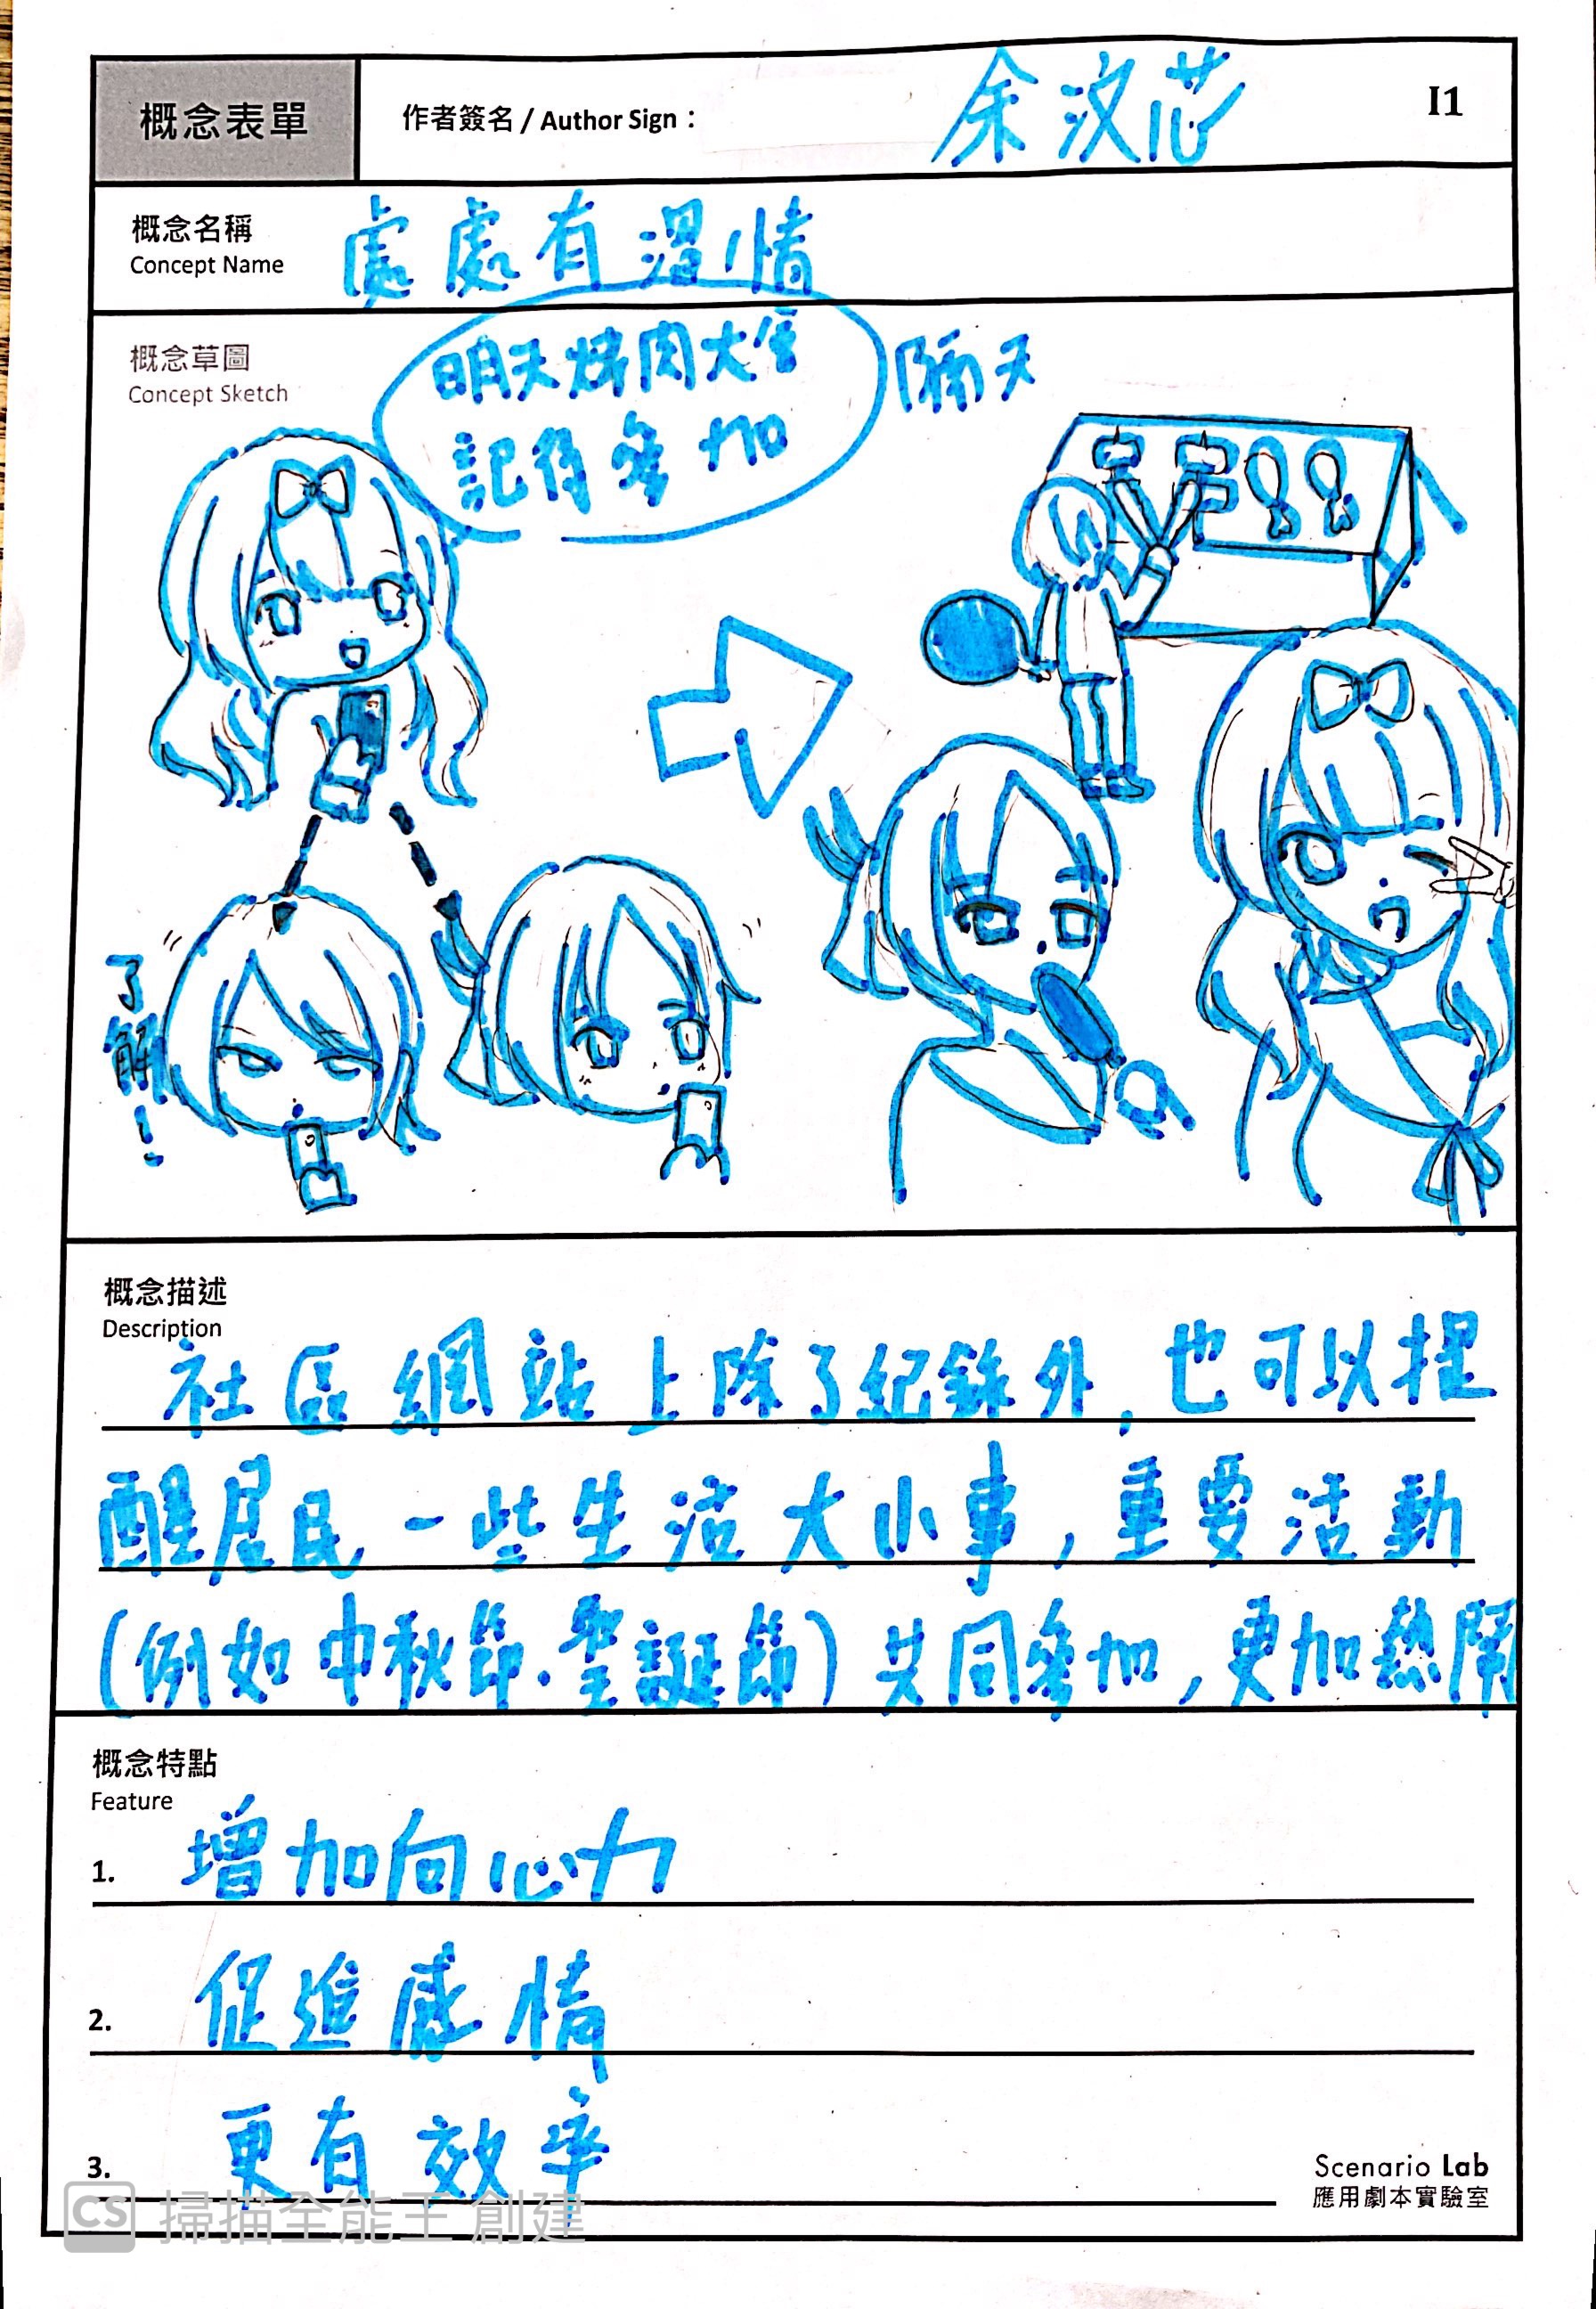 概念表單
作者簽名 / Author Sign：
余汶芯
I1
概念名稱
Concept Name
處處有溫情
概念草圖
Concept Sketch
明天烤肉大會
記得參加
隔天
了解！
概念描述
Description
社區網站上除了紀錄外，也可以提
醒居民一些生活大小事，重要活動
(例如中秋節.聖誕節)共同參加，更加熱鬧
概念特點
Feature
1. 增加向心力
2. 促進感情
3. 更有效率
Scenario Lab
應用劇本實驗室
CS 掃描全能王 創建